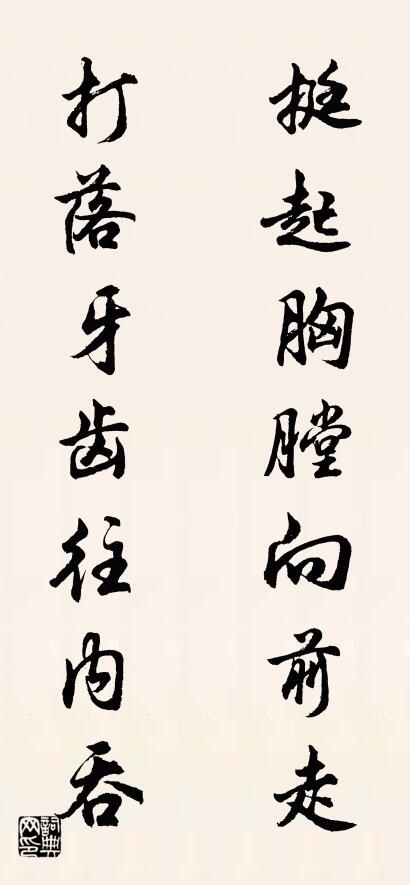 挺起胸膛向前走
打落牙齿往内吞
词典网印